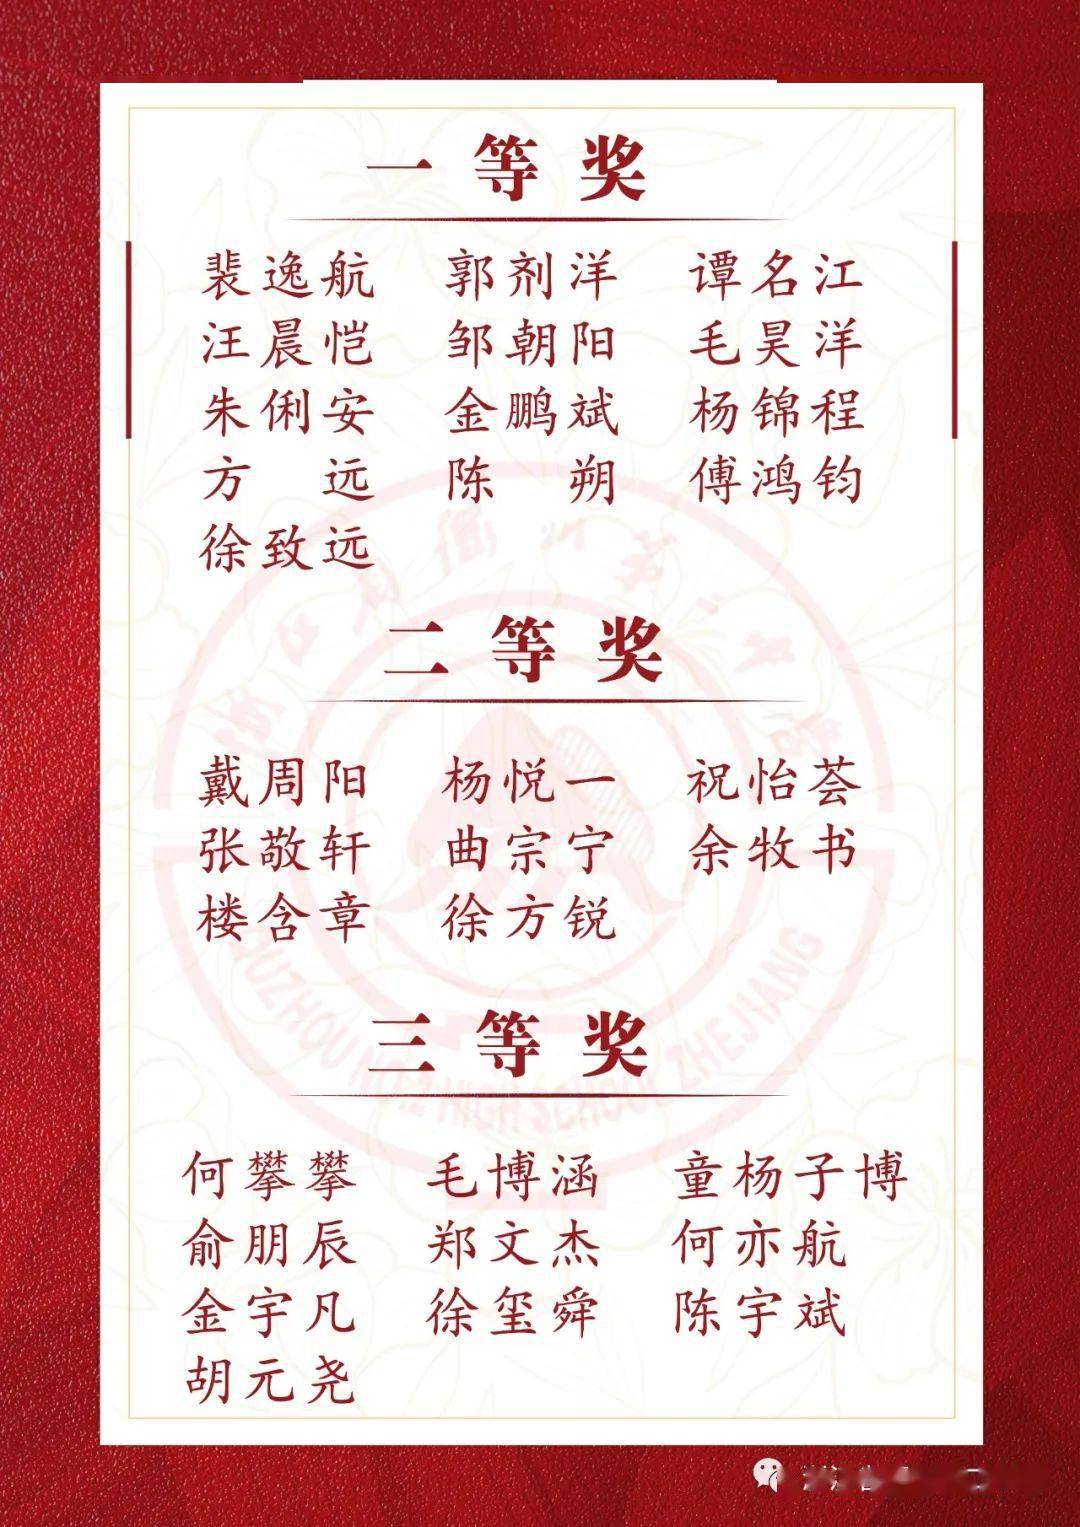 一等奖
裴逸航 郭剂洋 谭名江
汪晨恺 邹朝阳 毛昊洋
朱俐安 金鹏斌 杨锦程
方 远 陈 朔 傅鸿钧
徐致远
二等奖
戴周阳 杨悦一 祝怡荟
张敬轩 曲宗宁 余牧书
楼含章 徐方锐
三等奖
何攀攀 毛博涵 童杨子博
俞朋辰 郑文杰 何亦航
金宇凡 徐玺舜 陈宇斌
胡元尧
HIGH SCHOOL ZHEJIANG